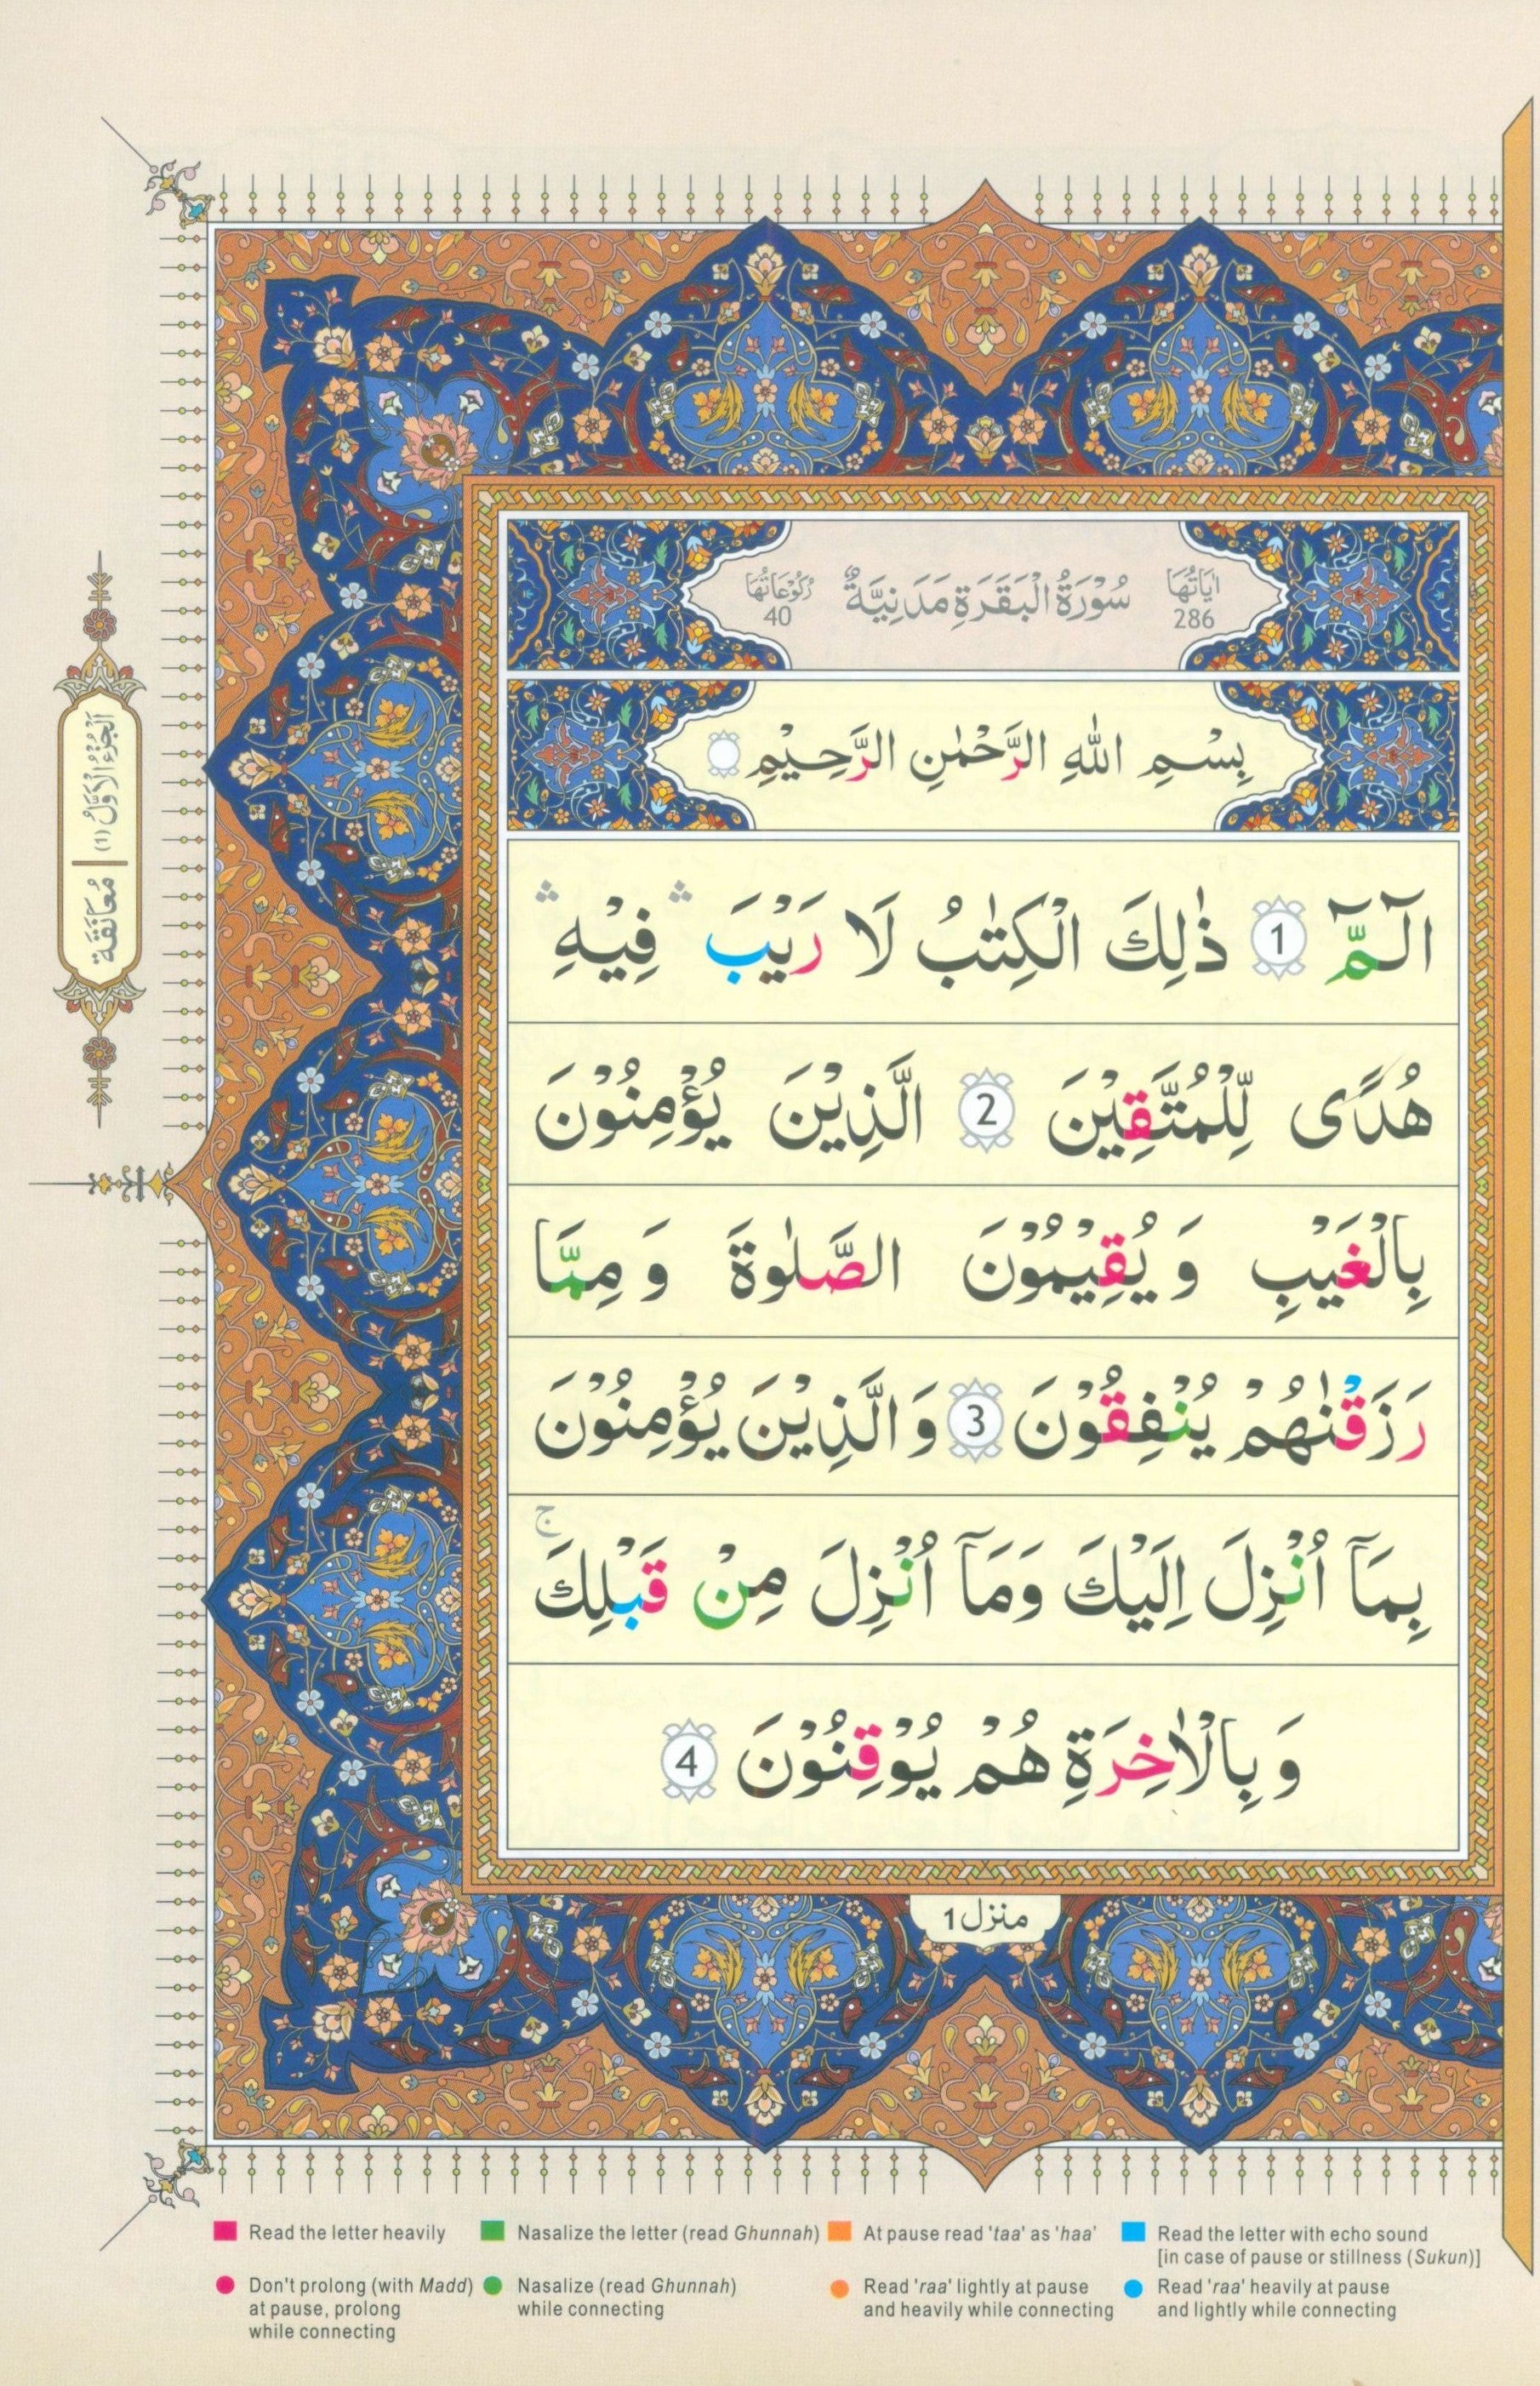 اٰيَاتُهَا
286
سُوْرَةُ الْبَقَرَةِ مَدَنِيَّةٌ
رُكُوْعَاتُهَا
40
بِسْمِ اللّٰهِ الرَّحْمٰنِ الرَّحِيْمِ
الٓمّٓ 1 ذٰلِكَ الْكِتٰبُ لَا رَيْبَ ۛ فِيْهِ ۛ
هُدًى لِّلْمُتَّقِيْنَ 2 الَّذِيْنَ يُؤْمِنُوْنَ
بِالْغَيْبِ وَيُقِيْمُوْنَ الصَّلٰوةَ وَمِمَّا
رَزَقْنٰهُمْ يُنْفِقُوْنَ 3 وَالَّذِيْنَ يُؤْمِنُوْنَ
بِمَآ اُنْزِلَ اِلَيْكَ وَمَآ اُنْزِلَ مِنْ قَبْلِكَ ۚ
وَبِالْاٰخِرَةِ هُمْ يُوْقِنُوْنَ 4
منزل 1
اَلْجُزْءُ الْاَوَّلُ (1) | مُعَانَقَة
Read the letter heavily
Nasalize the letter (read Ghunnah)
At pause read 'taa' as 'haa'
Read the letter with echo sound
[in case of pause or stillness (Sukun)]
Don't prolong (with Madd)
at pause, prolong
while connecting
Nasalize (read Ghunnah)
while connecting
Read 'raa' lightly at pause
and heavily while connecting
Read 'raa' heavily at pause
and lightly while connecting